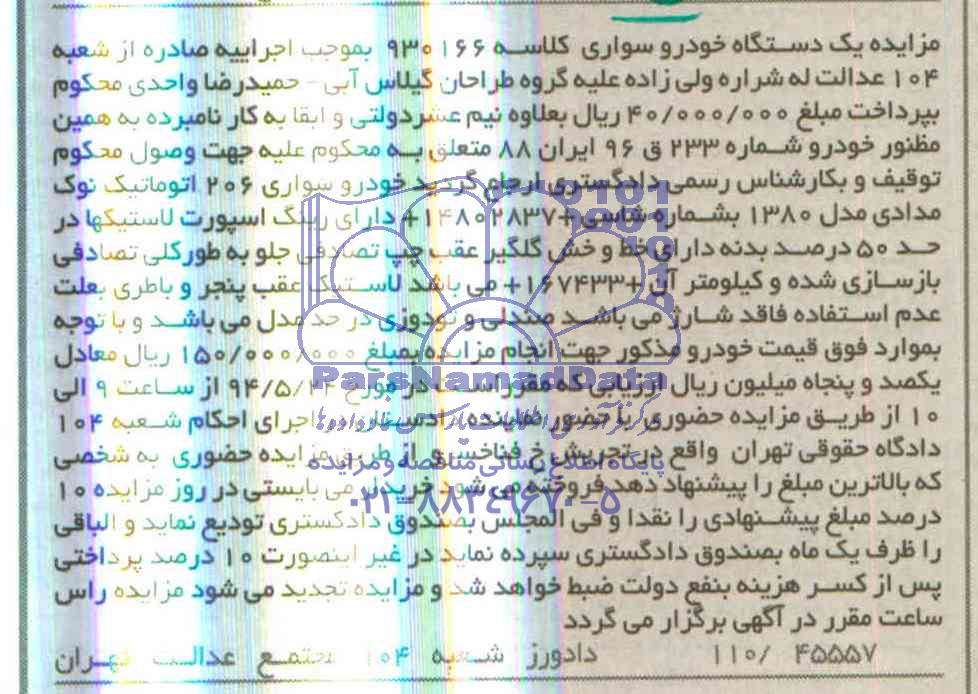 مزایده یک دستگاه خودرو سواری کلاسه ۹۳۰۱۶۶ بموجب اجراییه صادره از شعبه
۱۰۴ عدالت له شراره ولی زاده علیه گروه طراحان گیلاس آبی - حمیدرضا واحدی محکوم
بپرداخت مبلغ ۴۰/۰۰۰/۰۰۰ ریال بعلاوه نیم عشردولتی و ابقا به کار نامبرده به همین
مظنور خودرو شماره ۲۳۳ ق ۹۶ ایران ۸۸ متعلق به محکوم علیه جهت وصول محکوم
توقیف و بکارشناس رسمی دادگستری ارجاع گردید خودرو سواری ۲۰۶ اتوماتیک نوک
مدادی مدل ۱۳۸۰ بشماره شاسی +۱۴۸۰۲۸۳۷+ دارای رینگ اسپورت لاستیکها در
حد ۵۰ درصد بدنه دارای خط و خش گلگیر عقب چپ تصادفی جلو به طور کلی تصادفی
بازسازی شده و کیلومتر آن +۱۶۷۴۳۳+ می باشد لاستیک عقب پنجر و باطری بعلت
عدم استفاده فاقد شارژ می باشد صندلی و تودوزی در حد مدل می باشد و با توجه
بموارد فوق قیمت خودرو مذکور جهت انجام مزایده بمبلغ ۱۵۰/۰۰۰/۰۰۰ ریال معادل
یکصد و پنجاه میلیون ریال ارزیابی که مقرر است در مورخ ۹۴/۵/۲۴ از ساعت ۹ الی
۱۰ از طریق مزایده حضوری با حضور نماینده دادستان در اجرای احکام شعبه ۱۰۴
دادگاه حقوقی تهران واقع در تجریش خ فناخسرو از طریق مزایده حضوری به شخصی
که بالاترین مبلغ را پیشنهاد دهد فروخته می شود خریدار می بایستی در روز مزایده ۱۰
درصد مبلغ پیشنهادی را نقدا و فی المجلس بصندوق دادگستری تودیع نماید و الباقی
را ظرف یک ماه بصندوق دادگستری سپرده نماید در غیر اینصورت ۱۰ درصد پرداختی
پس از کسر هزینه بنفع دولت ضبط خواهد شد و مزایده تجدید می شود مزایده راس
ساعت مقرر در آگهی برگزار می گردد
۱۱۰/ ۴۵۵۵۷ دادورز شعبه ۱۰۴ مجتمع عدالت تهران
ParsNamadData
پایگاه اطلاع رسانی مناقصه و مزایده
۰۲۱-۸۸۳۴۹۶۷۰-۵